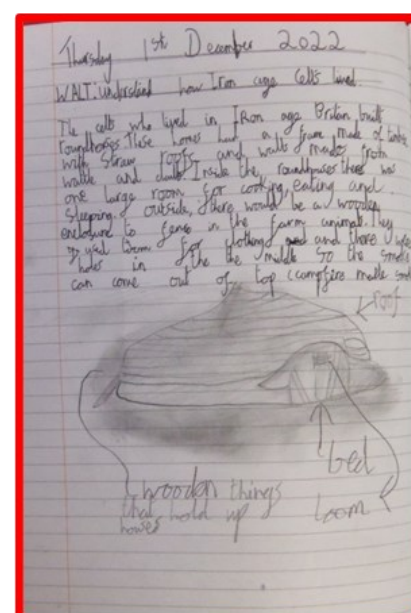 Thursday 1st December 2022
WALT: understand how Iron age Celts lived
The celts who lived in IRon age Britan built
roundhoses. These homes had a frame made of
with straw roofs and walls made from
wattle and daub. Inside the roundhouses there was
one large room for cooking, eating and
sleeping. outside, there would be a wooden
enclosure to fence in the farm animal. They
used loom for clothing and there
holes in the the middle so the smoke
can come out of top (campfire made
roof
bed
wooden things
that hold up
houses
Loom